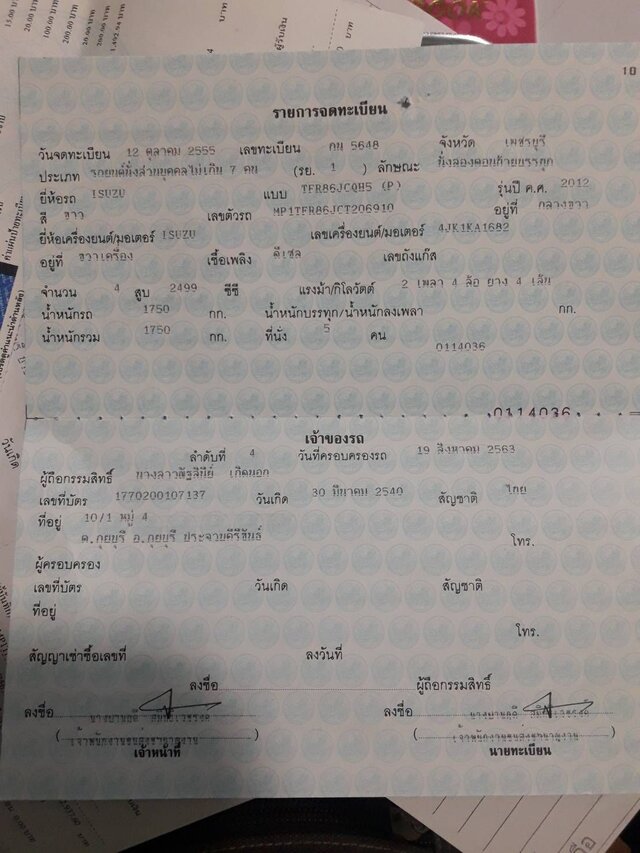 10
รายการจดทะเบียน
วันจดทะเบียน 12 ตุลาคม 2555 เลขทะเบียน กน 5648 จังหวัด เพชรบุรี
ประเภท รถยนต์นั่งส่วนบุคคลไม่เกิน 7 คน (รย. 1 ) ลักษณะ นั่งสองตอนท้ายบรรทุก
ยี่ห้อรถ ISUZU แบบ TFR86JCQH5 (P) รุ่นปี ค.ศ. 2012
สี ขาว เลขตัวรถ MP1TFR86JCT206910 อยู่ที่ กลางขวา
ยี่ห้อเครื่องยนต์/มอเตอร์ ISUZU เลขเครื่องยนต์/มอเตอร์ 4JK1KA1682
อยู่ที่ ขวาเครื่อง เชื้อเพลิง ดีเซล เลขถังแก๊ส
จำนวน 4 สูบ 2499 ซีซี แรงม้า/กิโลวัตต์ 2 เพลา 4 ล้อ ยาง 4 เส้น
น้ำหนักรถ 1750 กก. น้ำหนักบรรทุก/น้ำหนักลงเพลา กก.
น้ำหนักรวม 1750 กก. ที่นั่ง 5 คน
0114036
0114036
เจ้าของรถ
ลำดับที่ 4 วันที่ครอบครองรถ 19 สิงหาคม 2563
ผู้ถือกรรมสิทธิ์ นางสาวณัฐสินีย์ เกิดนอก
เลขที่บัตร 1770200107137 วันเกิด 30 มีนาคม 2540 สัญชาติ ไทย
ที่อยู่ 10/1 หมู่ 4
ต.กุยบุรี อ.กุยบุรี ประจวบคีรีขันธ์ โทร.
ผู้ครอบครอง
เลขที่บัตร วันเกิด สัญชาติ
ที่อยู่
โทร.
สัญญาเช่าซื้อเลขที่ ลงวันที่
ลงชื่อ ผู้ถือกรรมสิทธิ์
ลงชื่อ ลงชื่อ
(เจ้าพนักงานขนส่งชำนาญงาน) (เจ้าพนักงานขนส่งชำนาญงาน)
เจ้าหน้าที่ นายทะเบียน